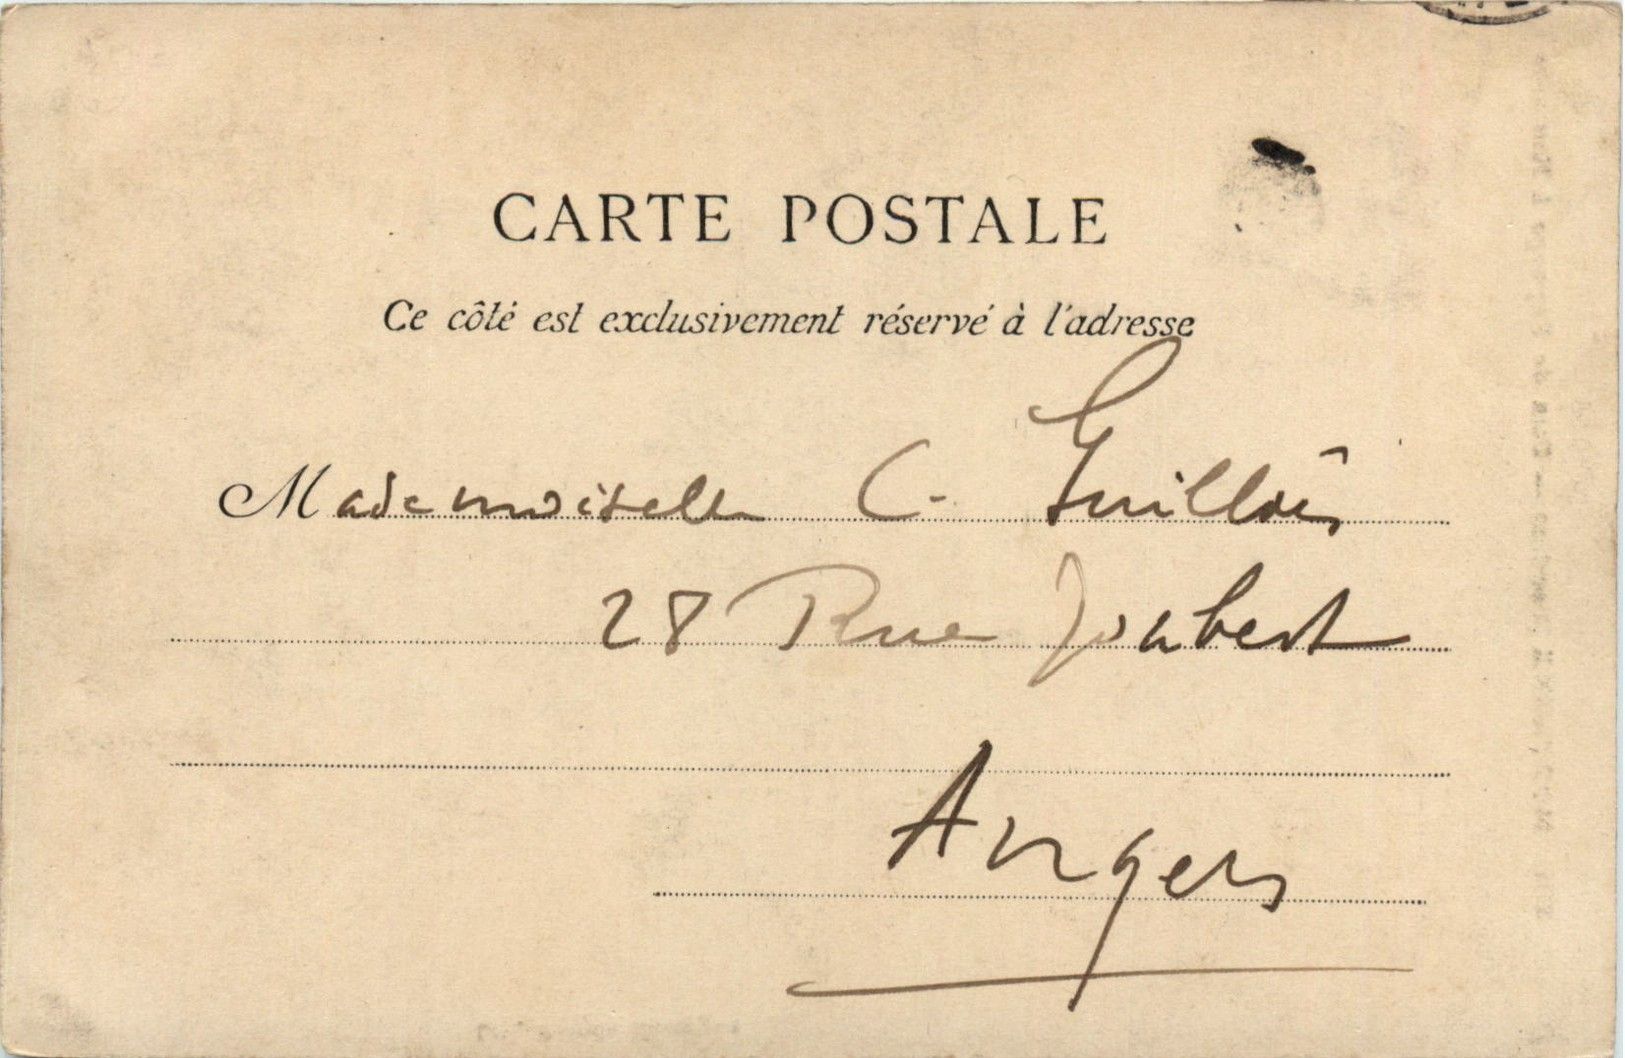 CARTE POSTALE
Ce côté est exclusivement réservé à l'adresse
Mademoiselle C. Guilloîs
28 Rue Joubert
Angers